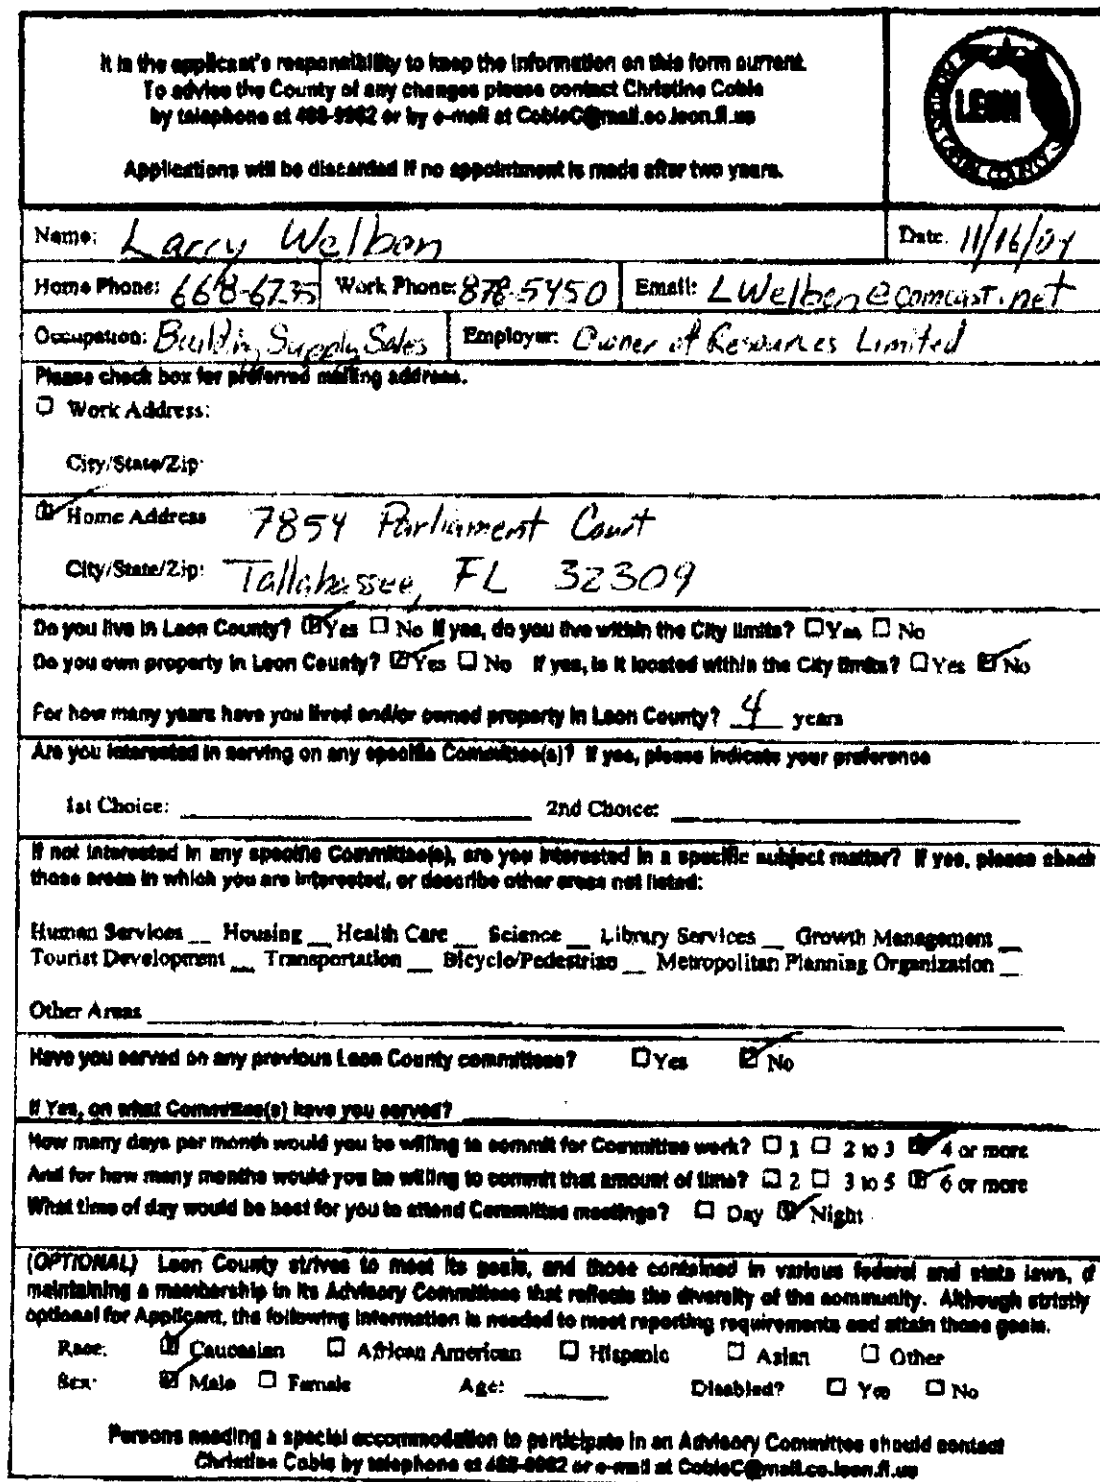 It is the applicant's responsibility to keep the information on this form current.
To advise the County of any changes please contact Christine Coble
by telephone at 488-9962 or by e-mail at CobleC@mail.co.leon.fl.us
Applications will be discarded if no appointment is made after two years.
LEON
Name: Larry Welben
Date: 11/16/04
Home Phone: 668-6735 Work Phone: 878-5450 Email: LWelben@comcast.net
Occupation: Building Supply Sales Employer: Owner of Resources Limited
Please check box for preferred mailing address.
Work Address:
City/State/Zip:
Home Address 7854 Parliament Court
City/State/Zip: Tallahassee, FL 32309
Do you live in Leon County? Yes No If yes, do you live within the City limits? Yes No
Do you own property in Leon County? Yes No If yes, is it located within the City limits? Yes No
For how many years have you lived and/or owned property in Leon County? 4 years
Are you interested in serving on any specific Committee(s)? If yes, please indicate your preference
1st Choice: 2nd Choice:
If not interested in any specific Committee(s), are you interested in a specific subject matter? If yes, please check
those areas in which you are interested, or describe other areas not listed:
Human Services __ Housing __ Health Care __ Science __ Library Services __ Growth Management __
Tourist Development __ Transportation __ Bicycle/Pedestrian __ Metropolitan Planning Organization __
Other Areas
Have you served on any previous Leon County committees? Yes No
If Yes, on what Committee(s) have you served?
How many days per month would you be willing to commit for Committee work? 1 2 to 3 4 or more
And for how many months would you be willing to commit that amount of time? 2 3 to 5 6 or more
What time of day would be best for you to attend Committee meetings? Day Night
(OPTIONAL) Leon County strives to meet its goals, and those contained in various federal and state laws, of
maintaining a membership in its Advisory Committees that reflects the diversity of the community. Although strictly
optional for Applicant, the following information is needed to meet reporting requirements and attain those goals.
Race: Caucasian African American Hispanic Asian Other
Sex: Male Female Age: Disabled? Yes No
Persons needing a special accommodation to participate in an Advisory Committee should contact
Christine Coble by telephone at 488-9962 or e-mail at CobleC@mail.co.leon.fl.us